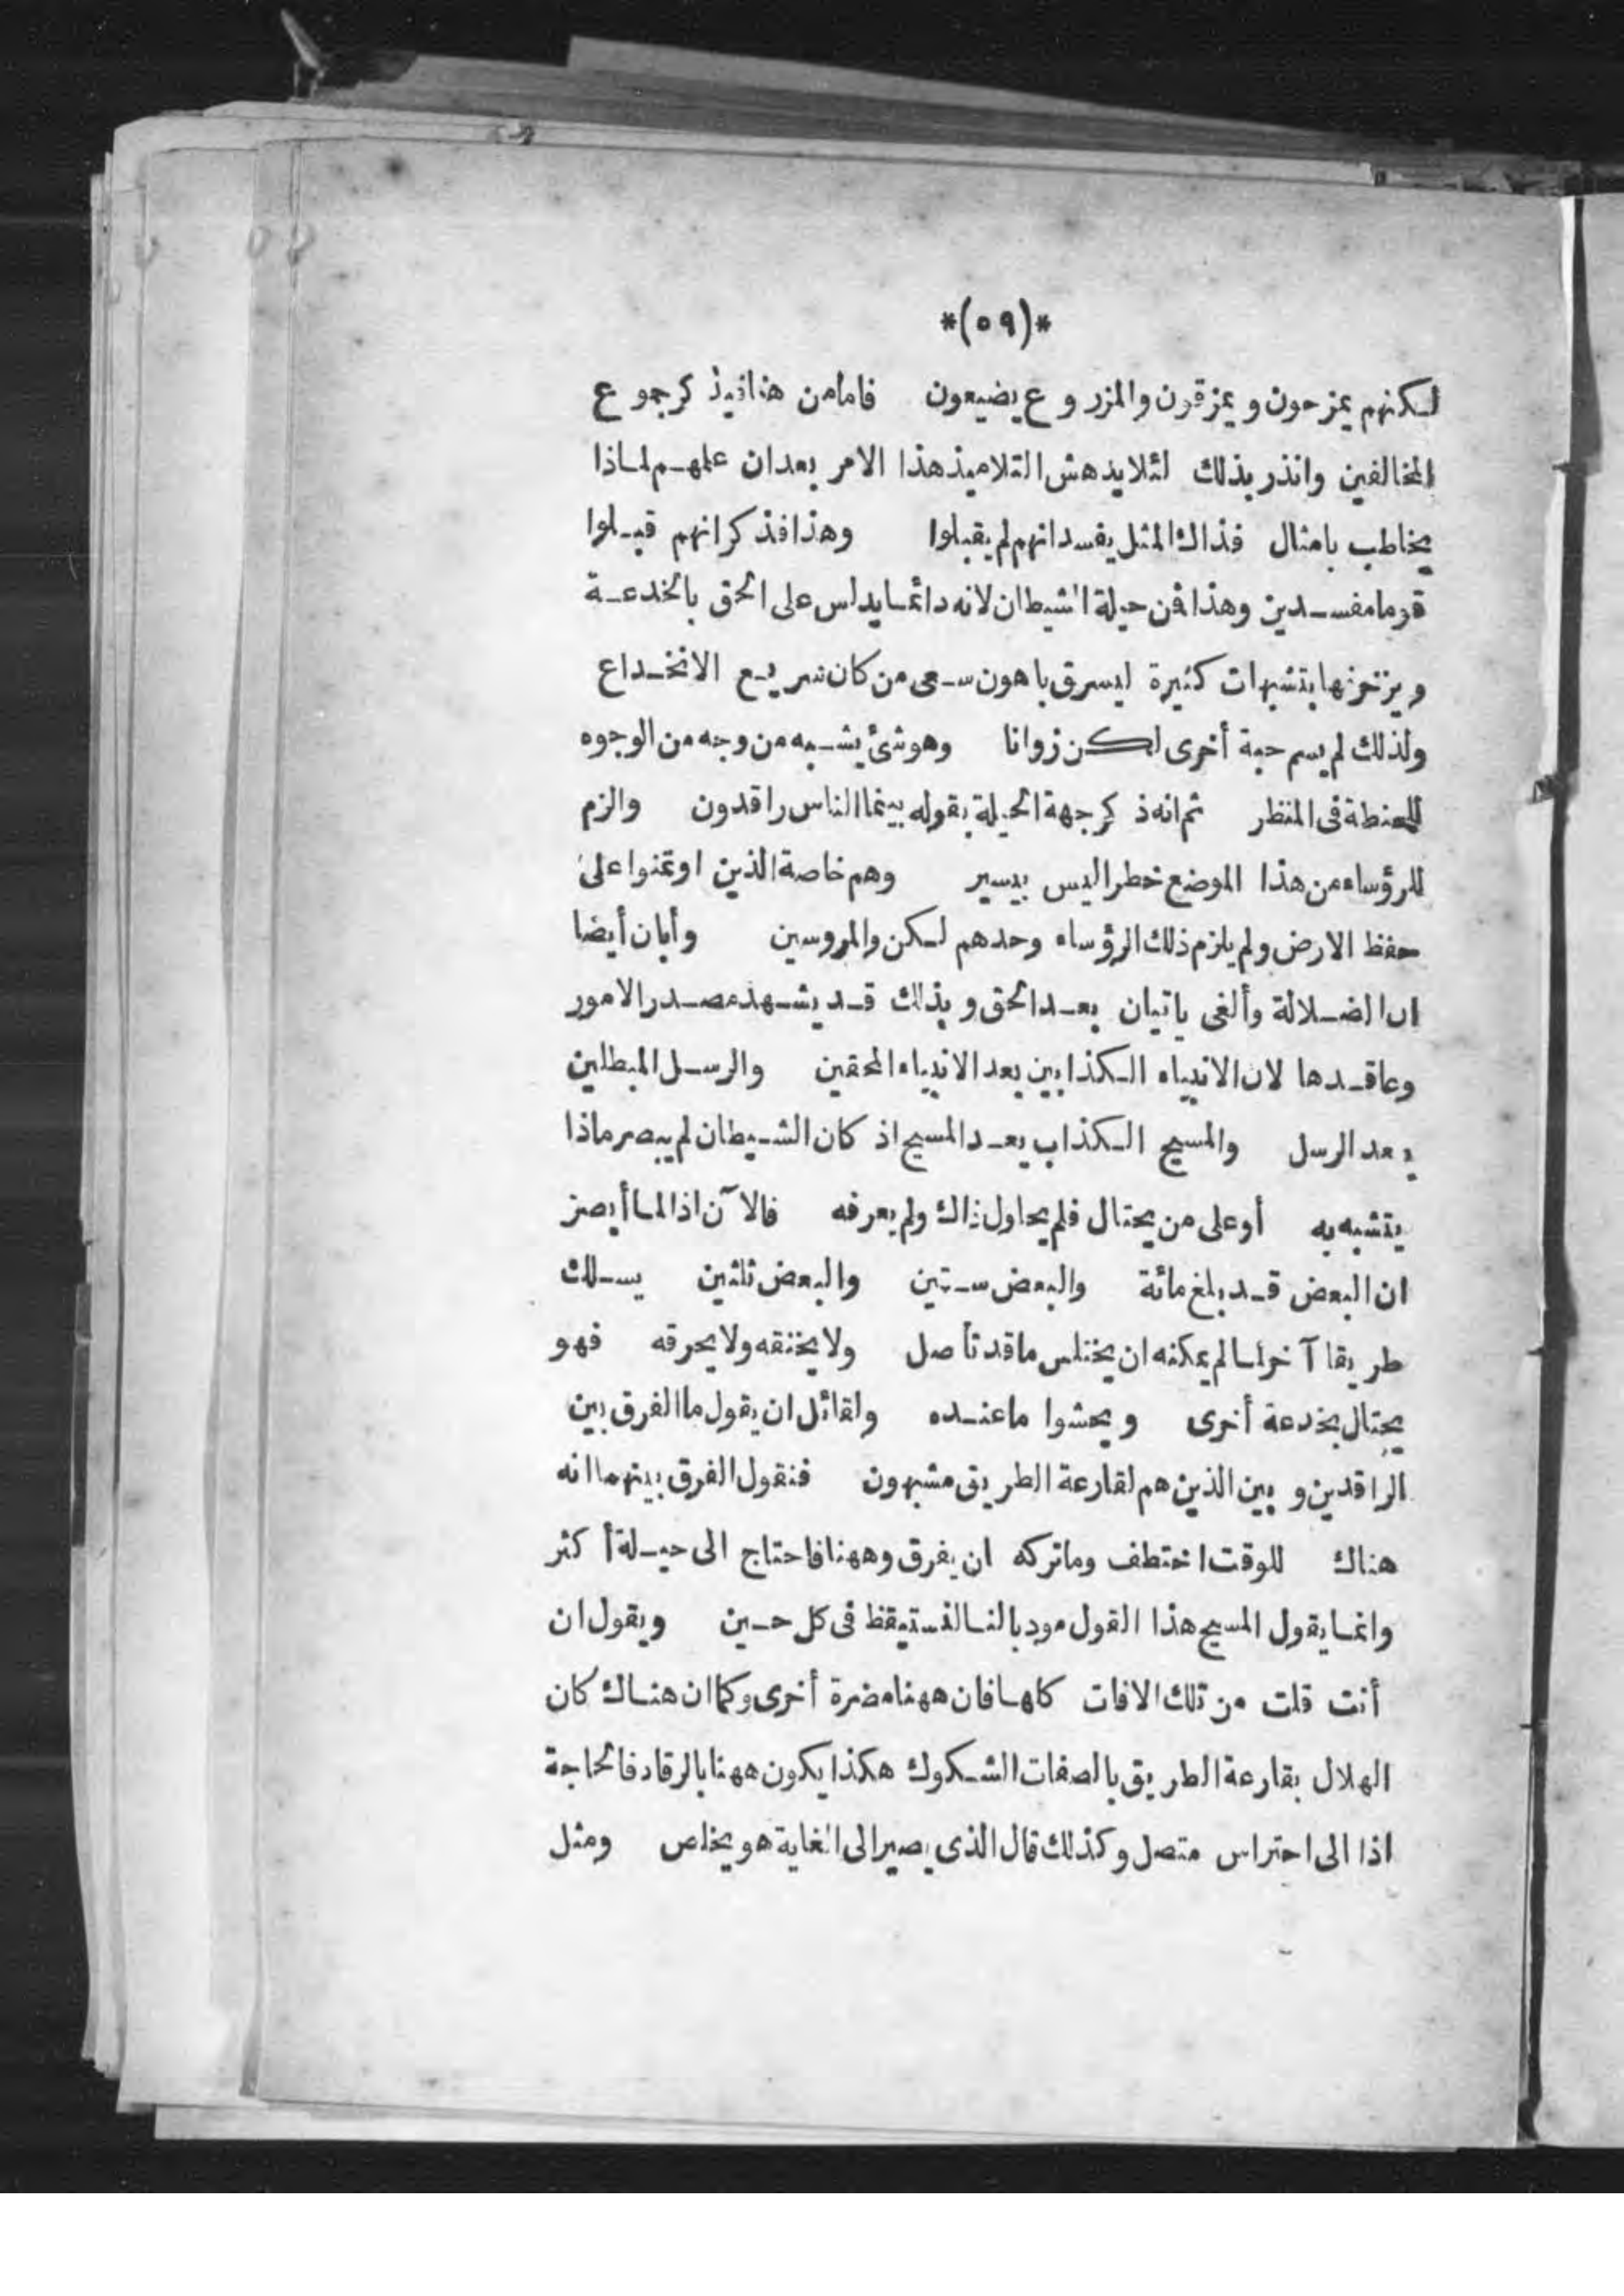 *(٥٩)*
لكنهم يمزحون ويمزقون والمزروع يضيعون فاما من هنا فيذكر جموع
المخالفين وانذر بذلك لئلا يدهش التلاميذ هذا الامر بعد ان علمهم لماذا
يخاطب بامثال فذاك المثل يفسد انهم لم يقبلوا وهذا فذكر انهم قبلوا
قوما مفسدين وهذا فن حيلة الشيطان لانه دائما يدلس على الحق بالخدعة
ويزخرفها بتشبهات كثيرة ليسرق باهون سعى من كان سريع الانخداع
ولذلك لم يسم حبة أخرى لكن زوانا وهو شئ يشبه من وجه من الوجوه
للحنطة فى المنظر ثم انه ذكر جهة الحيلة بقوله بينما الناس راقدون والزم
للرؤساء من هذا الموضع خطرا ليس بيسير وهم خاصة الذين اوتمنوا على
حفظ الارض ولم يلزم ذلك الرؤساء وحدهم لكن والمروسين وأبان أيضا
ان الضلالة وألغى ياتيان بعد الحق وبذلك قد يشهد مصدر الامور
وعاقدها لان الانبياء الكذابين بعد الانبياء المحقين والرسل المبطلين
بعد الرسل والمسيح الكذاب بعد المسيح اذ كان الشيطان لم يبصر ماذا
يتشبه به أو على من يحتال فلم يحاول ذاك ولم يعرفه فالآن اذا لما أبصر
ان البعض قد بلغ مائة والبعض ستين والبعض ثلثين يسلك
طريقا آخر اسالم يمكنه ان يختلس ما قد تأصل ولا يخنقه ولا يحرقه فهو
يحتال بخدعة أخرى ويحشوا ما عنده ولقائل ان يقول ما الفرق بين
الراقدين وبين الذين هم لقارعة الطريق مشبهون فنقول الفرق بينهما انه
هناك للوقت اختطف وما تركه ان يفرق وههنا فاحتاج الى حيلة أكثر
وانما يقول المسيح هذا القول مودبا لنا لنستيقظ فى كل حين ويقول ان
أنت قلت من تلك الافات كلها فان ههنا مضرة أخرى وكما ان هناك كان
الهلال بقارعة الطريق بالصفات الشكوك هكذا يكون ههنا بالرقاد فالحاجة
اذا الى احتراس متصل وكذلك قال الذى يصير الى الغاية هو يخلص ومثل